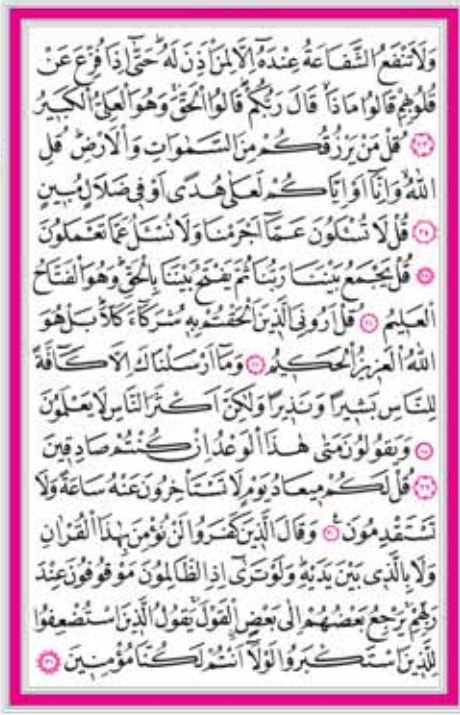 وَلَا تَنْفَعُ الشَّفَاعَةُ عِنْدَهُٓ اِلَّا لِمَنْ اَذِنَ لَهُۜ حَتّٰٓى اِذَا فُزِّعَ عَنْ
قُلُوبِهِمْ قَالُوا مَاذَاۙ قَالَ رَبُّكُمْۜ قَالُوا الْحَقَّۚ وَهُوَ الْعَلِيُّ الْكَبِيرُ
﴿٢٣﴾ قُلْ مَنْ يَرْزُقُكُمْ مِنَ السَّمٰوَاتِ وَالْاَرْضِۜ قُلِ
اللّٰهُۙ وَاِنَّٓا اَوْ اِيَّاكُمْ لَعَلٰى هُدًى اَوْ فِي ضَلَالٍ مُبِينٍ
﴿٢٤﴾ قُلْ لَا تُسْـَٔلُونَ عَمَّٓا اَجْرَمْنَا وَلَا نُسْـَٔلُ عَمَّا تَعْمَلُونَ
﴿٢٥﴾ قُلْ يَجْمَعُ بَيْنَنَا رَبُّنَا ثُمَّ يَفْتَحُ بَيْنَنَا بِالْحَقِّۜ وَهُوَ الْفَتَّاحُ
الْعَلِيمُ ﴿٢٦﴾ قُلْ اَرُونِيَ الَّذِينَ اَلْحَقْتُمْ بِهِ شُرَكَٓاءَ كَلَّاۜ بَلْ هُوَ
اللّٰهُ الْعَزِيزُ الْحَكِيمُ ﴿٢٧﴾ وَمَٓا اَرْسَلْنَاكَ اِلَّا كَٓافَّةً
لِلنَّاسِ بَشِيرًا وَنَذِيرًا وَلٰكِنَّ اَكْثَرَ النَّاسِ لَا يَعْلَمُونَ
﴿٢٨﴾ وَيَقُولُونَ مَتٰى هٰذَا الْوَعْدُ اِنْ كُنْتُمْ صَادِقِينَ
﴿٢٩﴾ قُلْ لَكُمْ مِيعَادُ يَوْمٍ لَا تَسْتَأْخِرُونَ عَنْهُ سَاعَةً وَلَا
تَسْتَقْدِمُونَ۟ ﴿٣٠﴾ وَقَالَ الَّذِينَ كَفَرُوا لَنْ نُؤْمِنَ بِهٰذَا الْقُرْاٰنِ
وَلَا بِالَّذِي بَيْنَ يَدَيْهِۜ وَلَوْ تَرٰٓى اِذِ الظَّالِمُونَ مَوْقُوفُونَ عِنْدَ
رَبِّهِمْۚ يَرْجِعُ بَعْضُهُمْ اِلٰى بَعْضٍۨ الْقَوْلَۚ يَقُولُ الَّذِينَ اسْتُضْعِفُوا
لِلَّذِينَ اسْتَكْبَرُوا لَوْلَٓا اَنْتُمْ لَكُنَّا مُؤْمِنِينَ ﴿٣١﴾